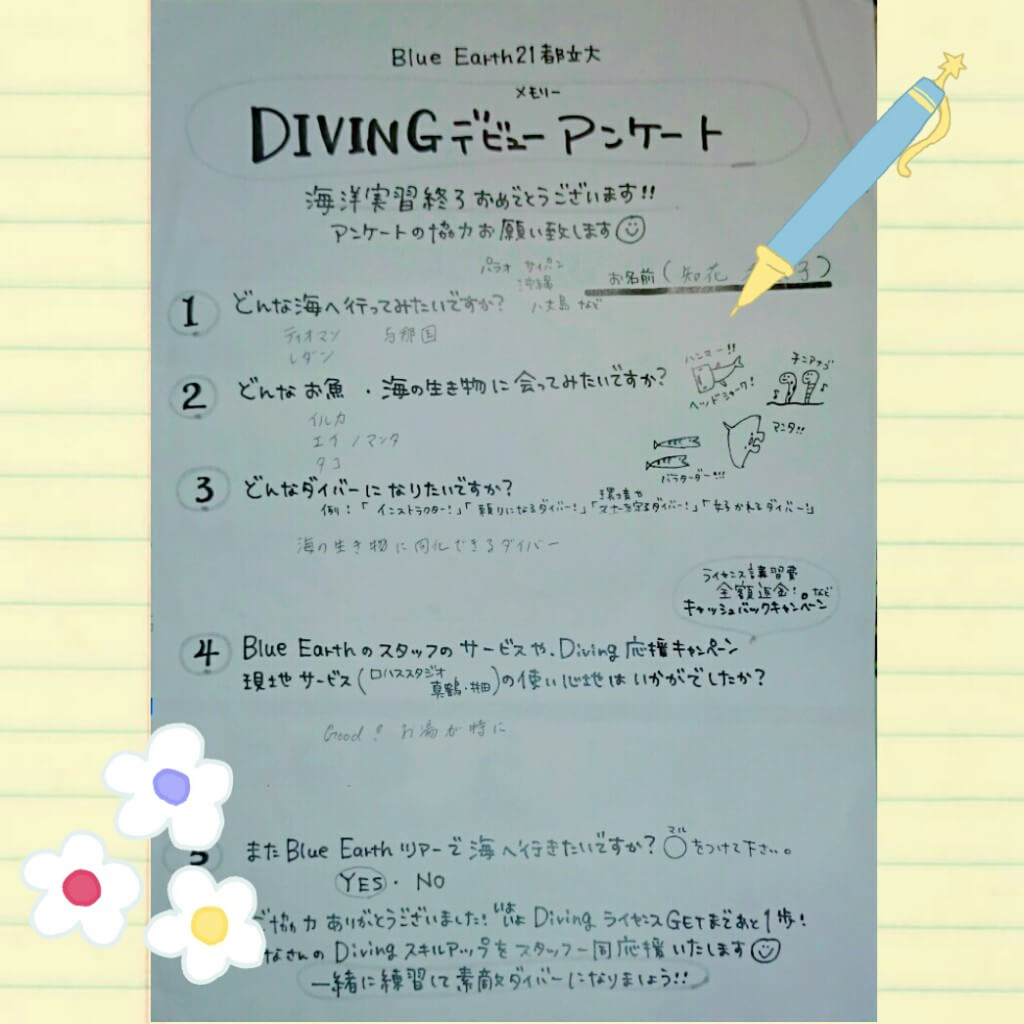 Blue Earth21都立大
メモリー
DIVINGデビューアンケート
海洋実習終了おめでとうございます!!
アンケートの協力お願い致します
お名前(知花 子)
パラオ サイパン
沖縄
八丈島 など
1 どんな海へ行ってみたいですか?
ティオマン 与那国
レダン
2 どんなお魚・海の生き物に会ってみたいですか?
ハンマー!!
ヘッドシャーク!
チンアナゴ
マンタ!!
バラクーダー!!!
イルカ
エイ/マンタ
タコ
3 どんなダイバーになりたいですか?
例:「インストラクター!」「頼りになるダイバー!」「環境やマナーを守るダイバー!」「好かれるダイバー!」
海の生き物に同化できるダイバー
ライセンス講習費
全額返金!。など
キャッシュバックキャンペーン
4 Blue Earthのスタッフのサービスや、Diving応援キャンペーン
現地サービス(ロハススタジオ 真鶴・井田)の使い心地はいかがでしたか?
Good! お湯が特に
またBlue Earthツアーで海へ行きたいですか?○マルをつけて下さい。
YES・NO
協力ありがとうございました!いよいよDivingライセンスGETまであと1歩!
なさんのDivingスキルアップをスタッフ一同応援いたします
一緒に練習して素敵ダイバーになりましょう!!